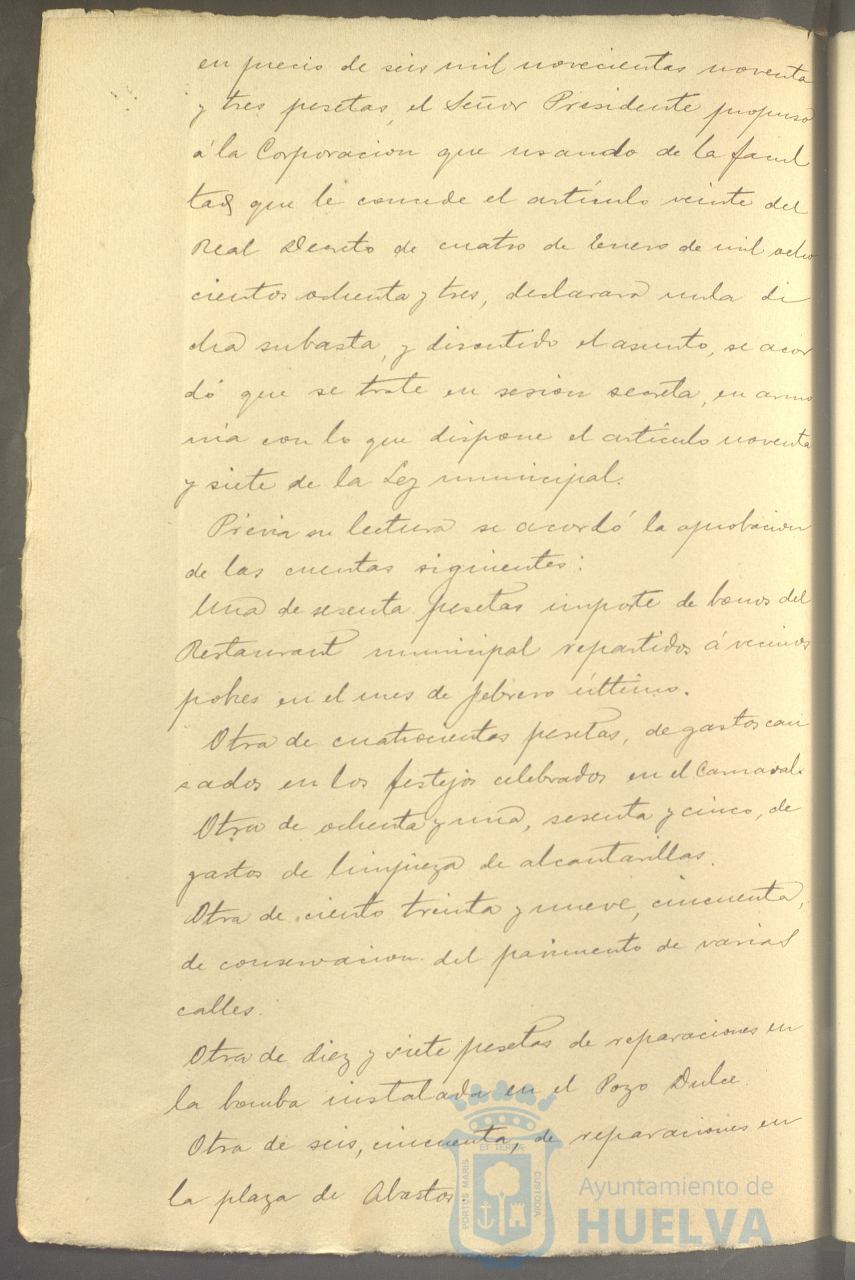 en precio de seis mil novecientas noventa
y tres pesetas, el Señor Presidente propuso
á la Corporacion que usando de la facul
tad que le concede el artículo veinte del
Real Decreto de cuatro de Enero de mil ocho
cientos ochenta y tres, declarara nula di
cha subasta, y discutido el asunto, se acor
dó que se trate en sesion secreta, en armo
nia con lo que dispone el artículo noventa
y siete de la Ley municipal.
Prévia su lectura se acordó la aprobacion
de las cuentas siguientes:
Una de sesenta pesetas importe de bonos del
Restaurant municipal repartidos á vecinos
pobres en el mes de febrero último.
Otra de cuatrocientas pesetas, de gastos cau
sados en los festejos celebrados en el Carnaval.
Otra de ochenta y una, sesenta y cinco, de
gastos de limpieza de alcantarillas.
Otra de ciento treinta y nueve, cincuenta,
de conservacion del pavimento de varias
calles.
Otra de diez y siete pesetas de reparaciones en
la bomba instalada en el Pozo Dulce.
Otra de seis, cincuenta, de reparaciones en
la plaza de Abastos
PORTUS MARIS
ET TERRÆ
CUSTODIA
Ayuntamiento de
HUELVA